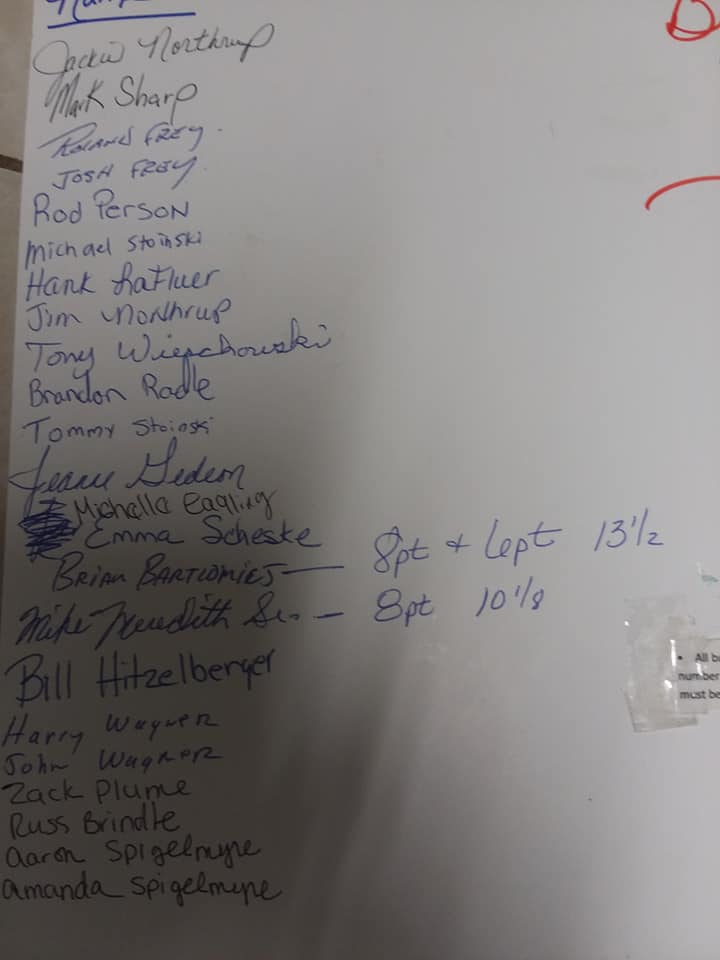 Jackie Northrup
Mark Sharp
Roland Frey.
Josh Frey.
Rod Person
Michael Stoinski
Hank LaFluer
Jim Northrup
Tony Wiepchowski
Brandon Radle
Tommy Stoinski
Jeanne Gedeon
Michelle Eagling
Emma Scheske
Brian Bartlomies — 8pt + 6pt 13 1/2
Mike Meredith Sr. — 8pt 10 1/8
Bill Hitzelberger
Harry Wagner
John Wagner
Zack Plume
Russ Brindle
Aaron Spigelmyre
Amanda Spigelmyre
• All b
number
must be